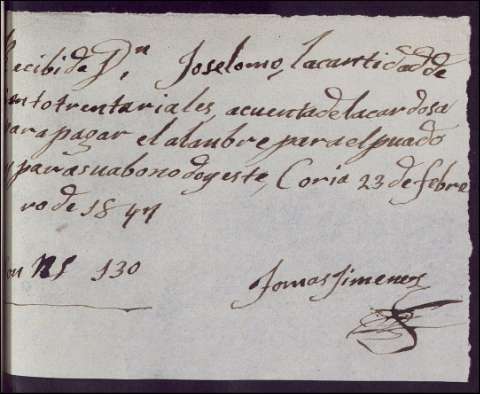 Recibi de Dn Jose lomo, la cantidad de
iento trenta riales, a cuenta de la cardosa
para pagar el alanbre para el puado
y para su abono doy este, Coria 23 de febre
ro de 1847
on Rs 130
Tomas Jimenez